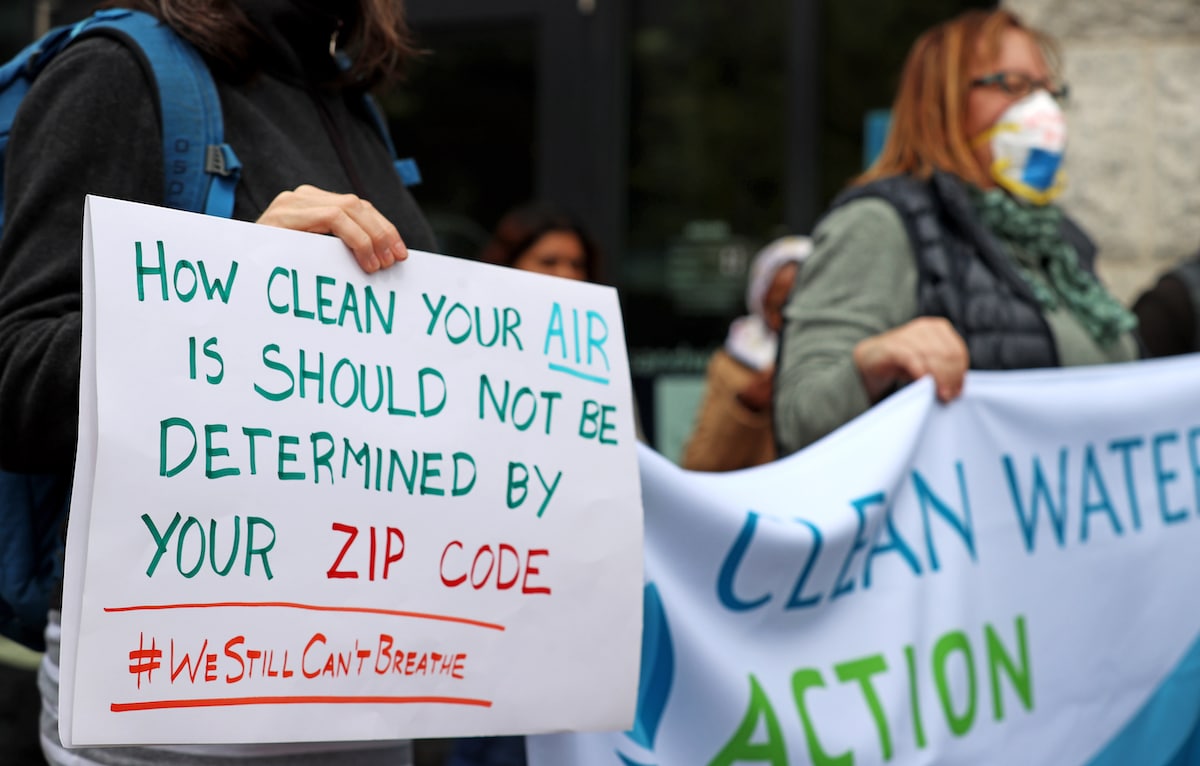 How CLEAN YOUR AIR
IS SHOULD NOT BE
DETERMINED BY
YOUR ZIP CODE
#WeStillCan'tBreathe
CLEAN WATER
ACTION